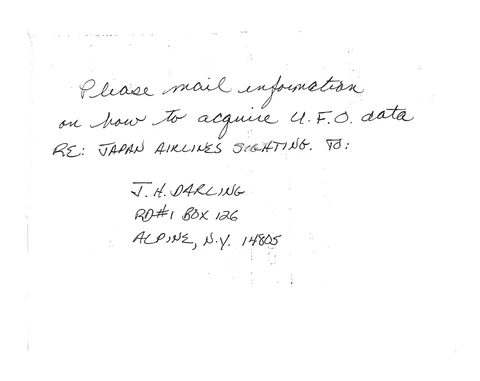 Please mail information
on how to acquire U.F.O. data
RE: JAPAN AIRLINES SIGHTING. TO:
J.H. DARLING
RD#1 BOX 126
ALPINE, N.Y. 14805